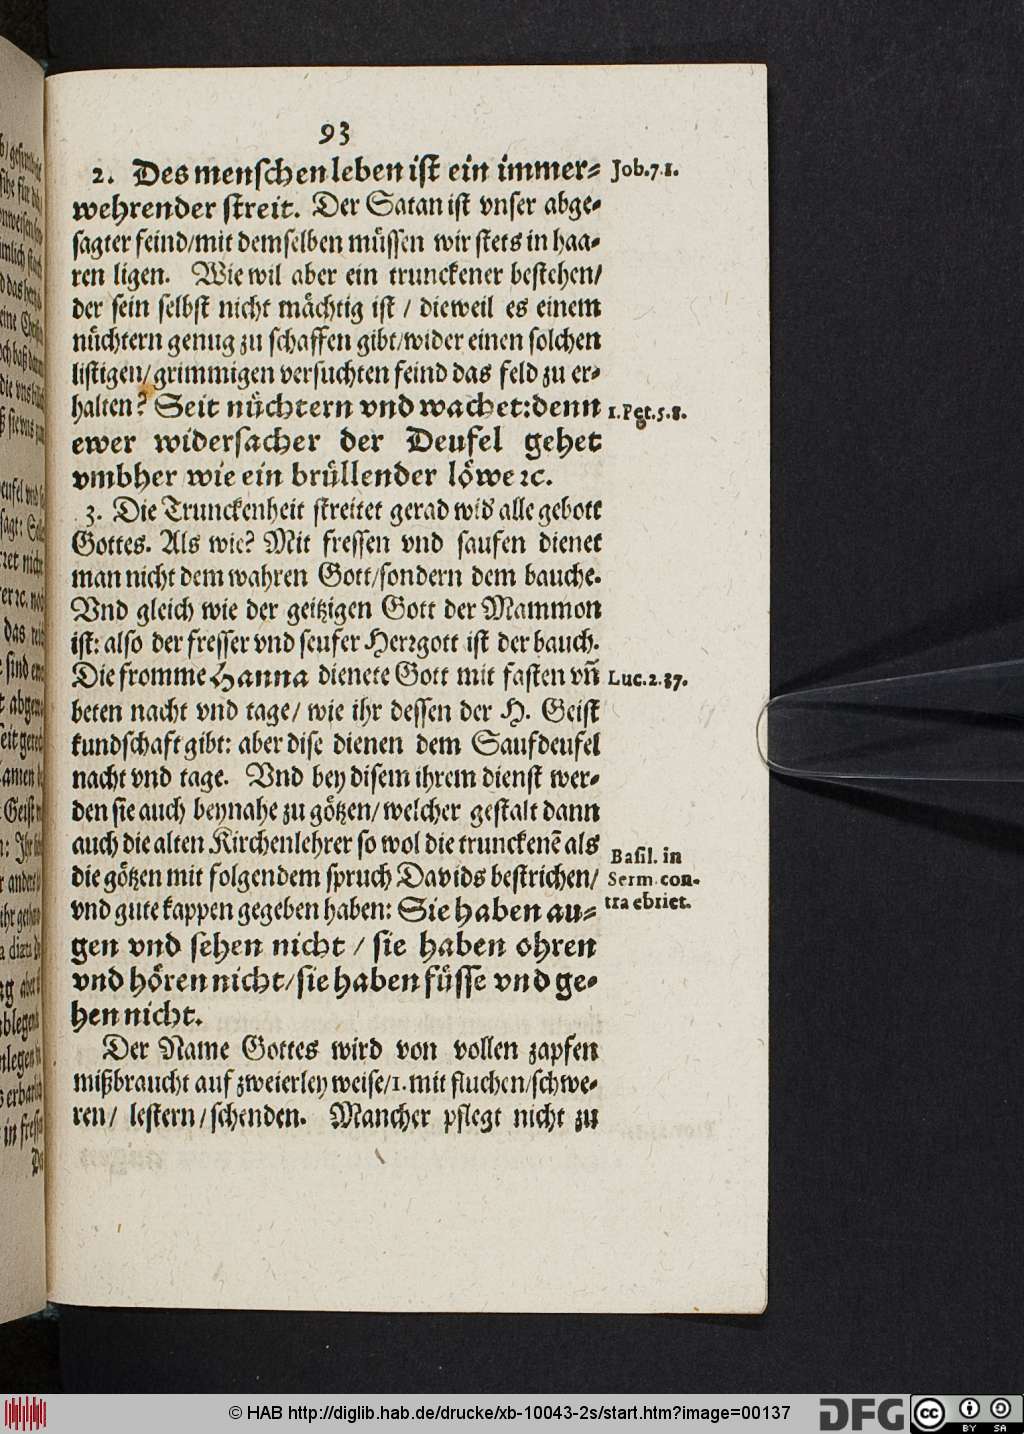 93
2. Des menschen leben ist ein immer-
wehrender streit. Der Satan ist vnser abge-
sagter feind/mit demselben müssen wir stets in haa-
ren ligen. Wie wil aber ein trunckener bestehen/
der sein selbst nicht mächtig ist / dieweil es einem
nüchtern genug zu schaffen gibt/wider einen solchen
listigen/grimmigen versuchten feind das feld zu er-
halten? Seit nüchtern vnd wachet:denn
ewer widersacher der Deufel gehet
vmbher wie ein brüllender löwe ꝛc.
3. Die Trunckenheit streitet gerad wid' alle gebott
Gottes. Als wie? Mit fressen vnd saufen dienet
man nicht dem wahren Gott/sondern dem bauche.
Vnd gleich wie der geitzigen Gott der Mammon
ist: also der fresser vnd seufer Herꝛgott ist der bauch.
Die fromme Hanna dienete Gott mit fasten vn̄
beten nacht vnd tage/ wie ihr dessen der H. Geist
kundschaft gibt: aber dise dienen dem Saufdeufel
nacht vnd tage. Vnd bey disem ihrem dienst wer-
den sie auch beynahe zu götzen/welcher gestalt dann
auch die alten Kirchenlehrer so wol die trunckenē als
die götzen mit folgendem spruch Davids bestrichen/
vnd gute kappen gegeben haben: Sie haben au-
gen vnd sehen nicht / sie haben ohren
vnd hören nicht/sie haben füsse vnd ge-
hen nicht.
Der Name Gottes wird von vollen zapfen
mißbraucht auf zweierley weise/1. mit fluchen/schwe-
ren/ lestern/schenden. Mancher pflegt nicht zu
Job.7.1.
1.Pet.5.8.
Luc.2.37.
Basil. in
Serm. con-
tra ebriet.
© HAB http://diglib.hab.de/drucke/xb-10043-2s/start.htm?image=00137
DFG
cc
BY SA